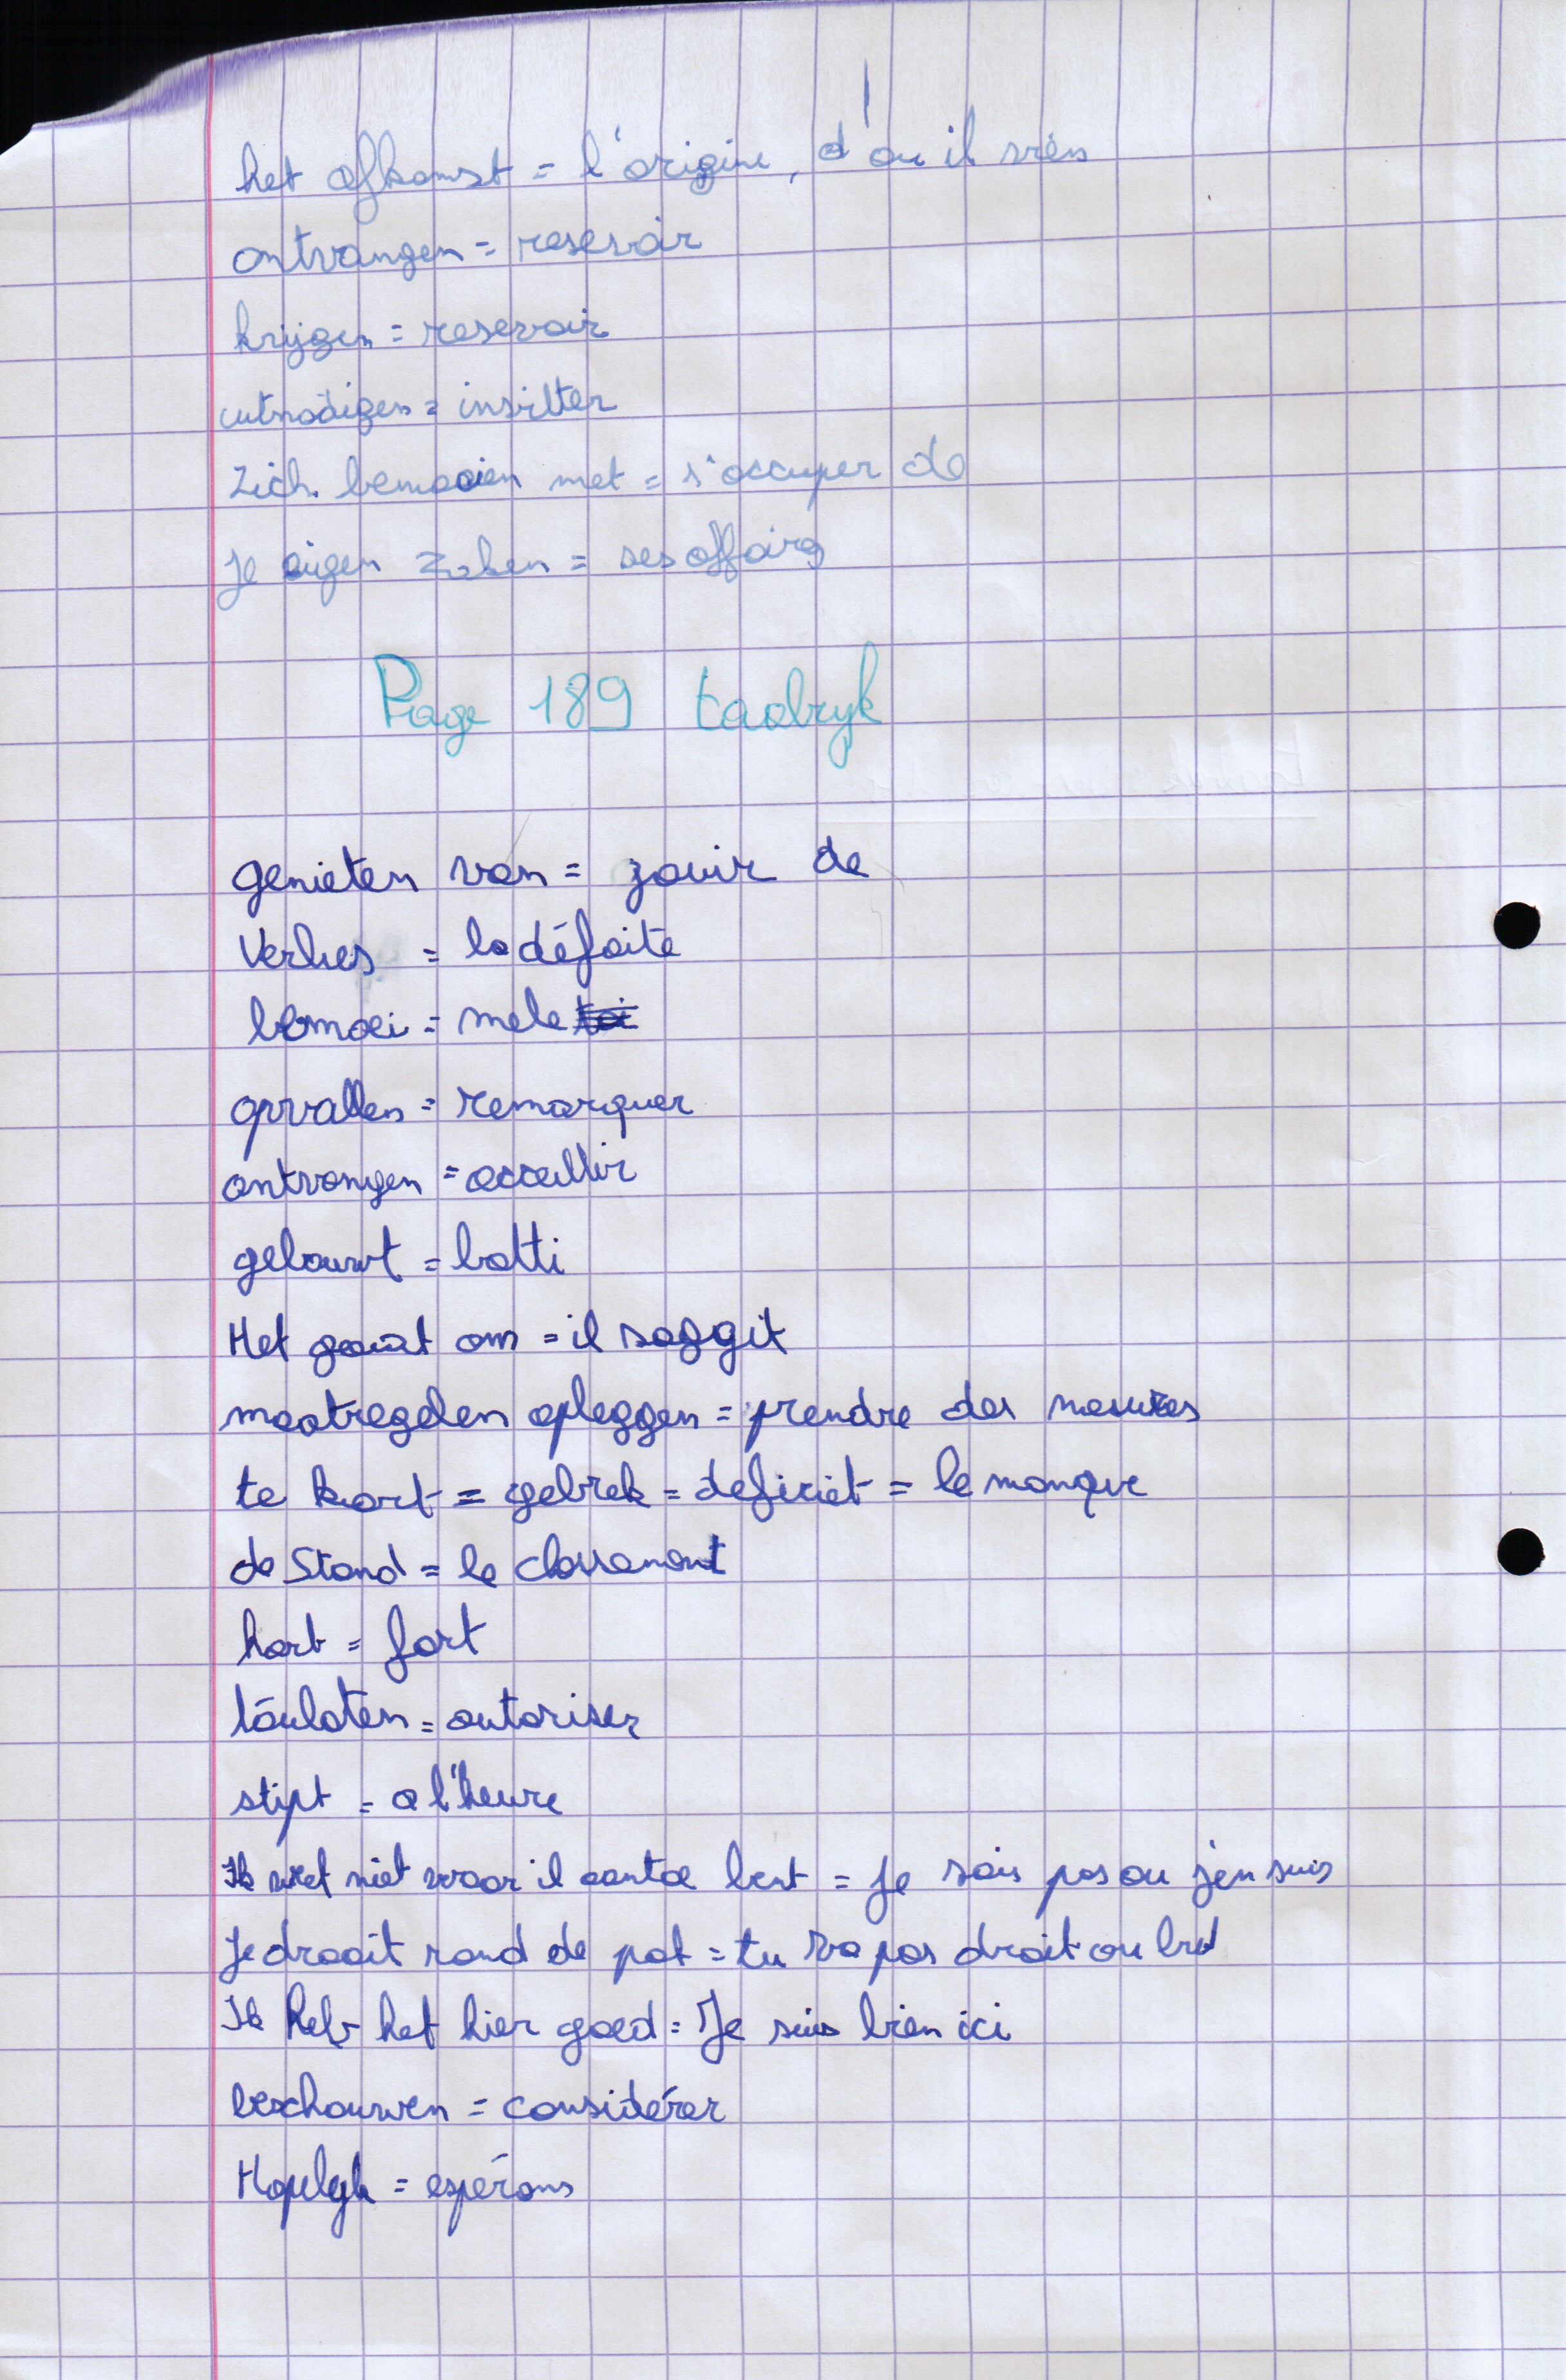 het afkomst = l'origine, d'ou il viens
ontvangen = resevoir
krijgen = resevoir
uitnodigen = inviter
Zich bemoeien met = s'occuper de
Je eigen zaken = ses affaires
Page 189 taalryk
genieten van = jouir de
Verlies = la défaite
bemoei = mele toi
opvallen = remarquer
ontvangen = accuillir
gebouwt = batti
Het gaat om = il saggit
maatregelen opleggen = prendre des mesures
te kort = gebrek = deficiet = le manque
de Stand = le classement
hard = fort
toulaten = autoriser
stipt = a l'heure
Ik weet niet waar il aantoe bent = Je sais pas ou j'en suis
Je draait rond de pot = tu va pas droit au but
Ik heb het hier goed = Je suis bien ici
beschouwen = considérer
Hopelyk = espérons